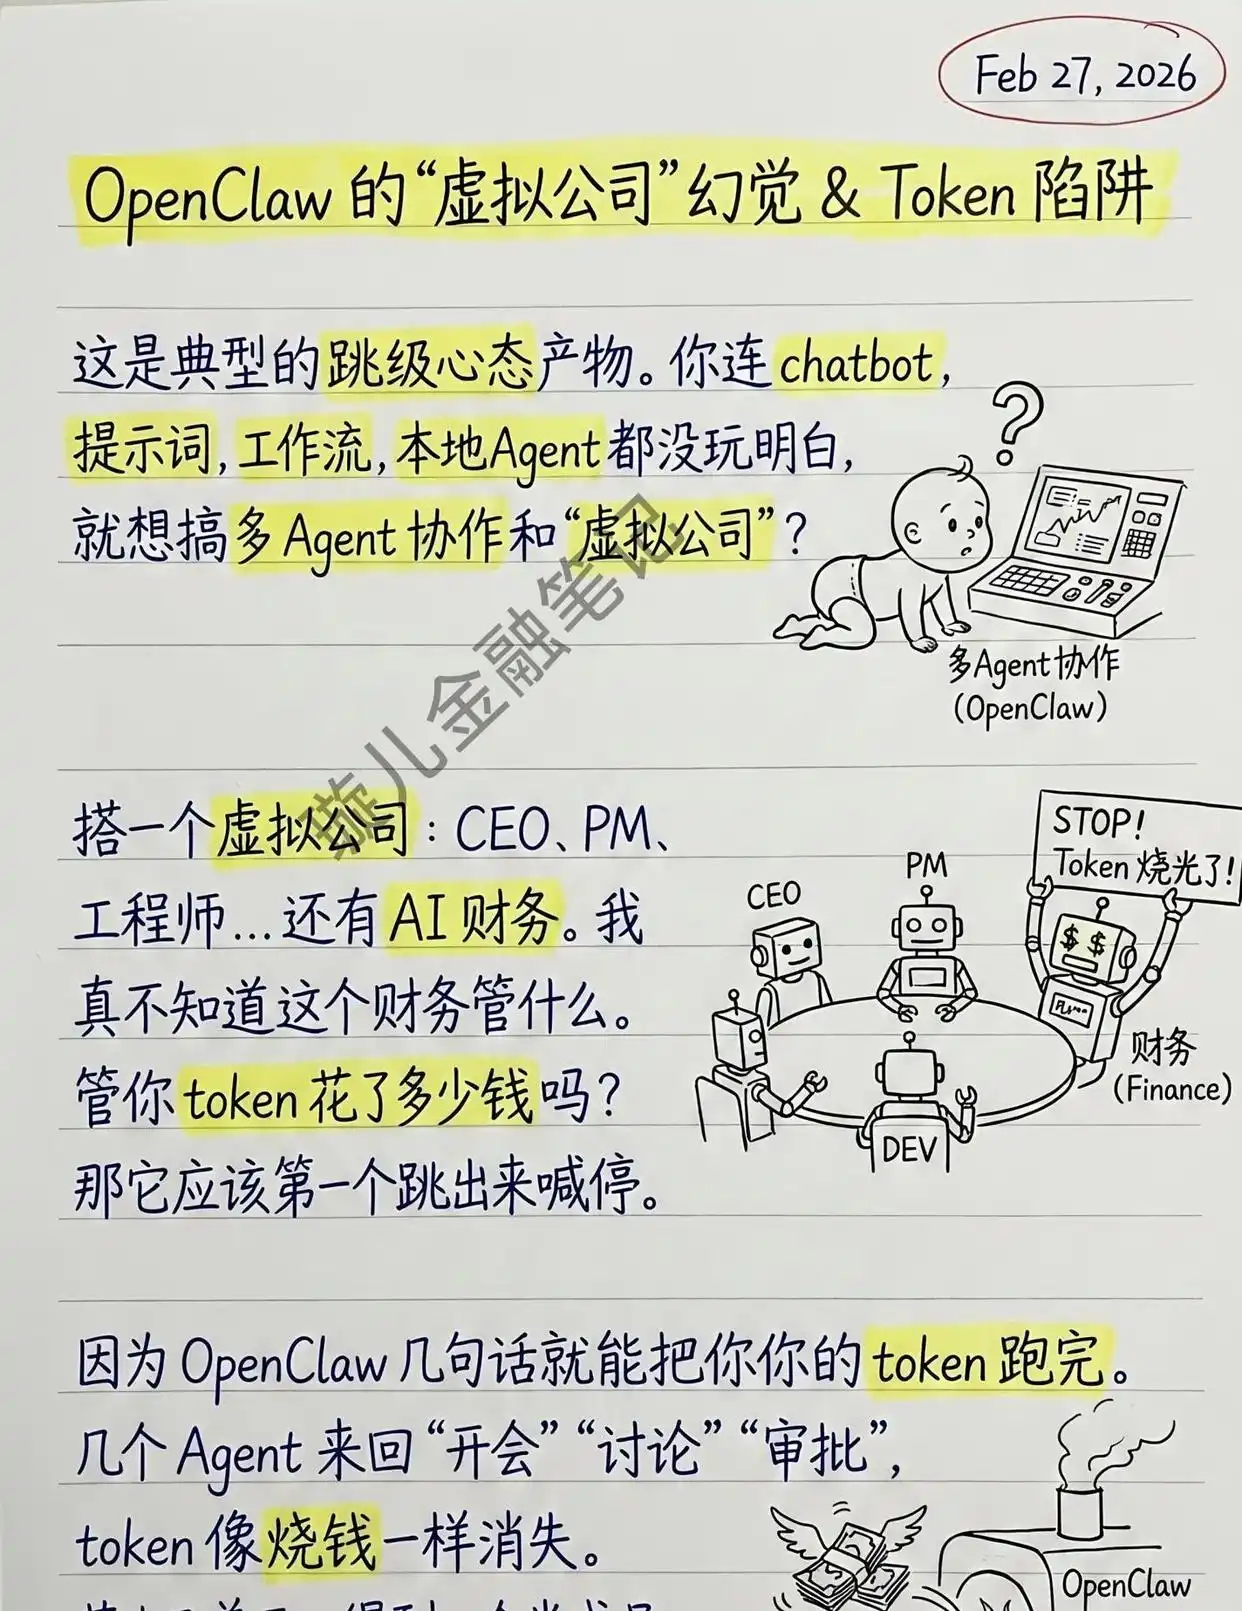 Feb 27, 2026
OpenClaw 的“虚拟公司”幻觉 & Token 陷阱
这是典型的跳级心态产物。你连 chatbot,
提示词, 工作流, 本地Agent 都没玩明白,
就想搞多 Agent 协作和“虚拟公司”?
多Agent协作
(OpenClaw)
璇儿金融笔记
搭一个虚拟公司: CEO、PM、
工程师...还有 AI 财务。我
真不知道这个财务管什么。
管你 token 花了多少钱吗?
那它应该第一个跳出来喊停。
STOP!
Token 烧光了!
CEO
PM
$ $
财务
(Finance)
DEV
因为 OpenClaw 几句话就能把你你的 token 跑完。
几个 Agent 来回“开会”“讨论”“审批”,
token 像烧钱一样消失。
OpenClaw